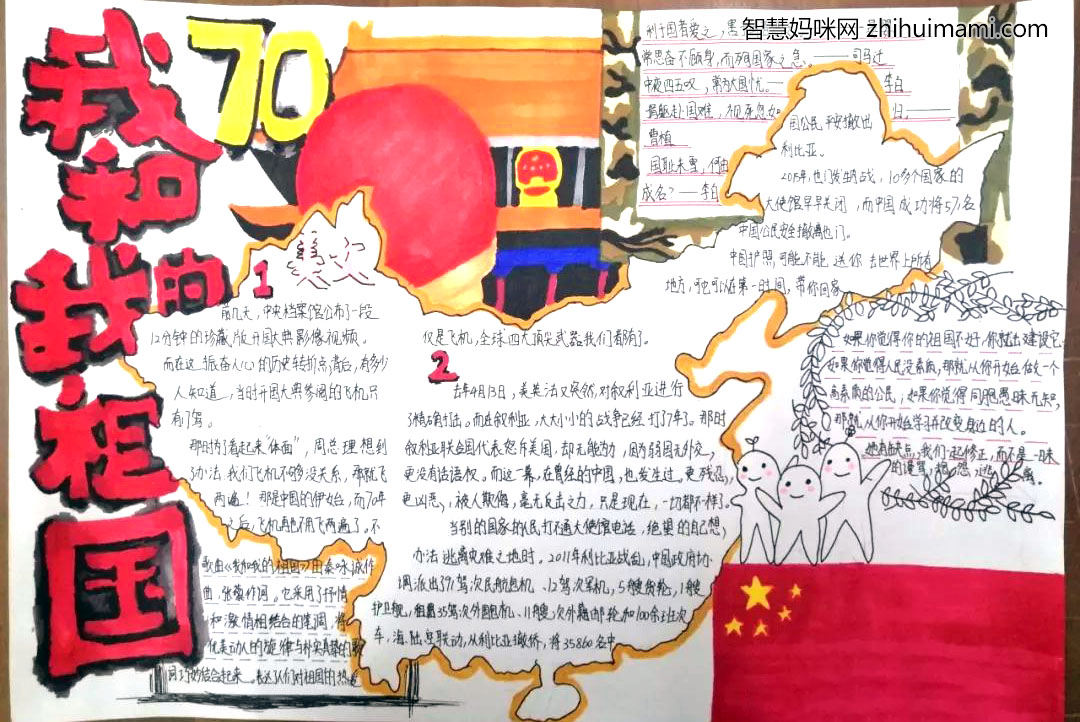 智慧妈咪网 zhihuimami.com
我和我的祖国
70
利于国者爱之，
常思奋不顾身，而殉国家之急。——司马迁
中夜四五叹，常为大国忧。——李白
捐躯赴国难，视死忽如归，——
曹植
国耻未雪，何由
成名？——李白
1
前几天，中央档案馆公布了一段
12分钟的珍藏版开国大典影像视频。
而在这振奋人心的历史转折点背后，有多少
人知道，当时开国大典参阅的飞机只
有17驾
那时为了看起来“体面”，周总理想到
办法，我们飞机不够没关系，那就飞
两遍！那是中国的伊始，而70年
之后，飞机再也不用飞两遍了，不
仅是飞机，全球四大顶尖武器我们都有了。
2
去年4月13日，美英法又突然对叙利亚进行
了精确打击。而在叙利亚，大大小小的战争已经打了7年了。那时
叙利亚联合国代表怒斥美国，却无能为力，因为弱国无外交，
更没有话语权。而这一幕，在曾经的中国，也发生过。更残忍，
更凶恶，被人欺侮，毫无反击之力，只是现在，一切都不一样了。
当别的国家的人民打不通大使馆电话，绝望的自己想
办法逃离灾难之地时。2011年利比亚战乱，中国政府协
调派出91驾次民航包机、12驾次军机，5艘货轮，1艘
护卫舰，租用35驾次外国包机、11艘次外籍邮轮和100余班次
车，海、陆、空联动，从利比亚撤侨，将35860名中
国公民平安撤出
利比亚。
2015年，也门发生内战，10多个国家的
大使馆早早关闭，而中国成功将571名
中国公民安全撤离也门。
中国护照可能不能送你去世界上所有
地方，可它可以在第一时间，带你回家
歌曲《我和我的祖国》由秦咏诚作
曲，张藜作词。它采用了抒情
和激情相结合的笔调，将
优美动人的旋律与朴实真挚的歌
词巧妙结合起来。表达了人们对祖国的热爱
如果你觉得你的祖国不好，你就去建设它
如果你觉得人民没素质，那就从你开始做一个
高素质的公民；如果你觉得同胞愚昧无知，
那就从你开始学习并改变身边的人。
她有缺点，我们一起修正，而不是一味
的谩骂，抱怨，逃离。